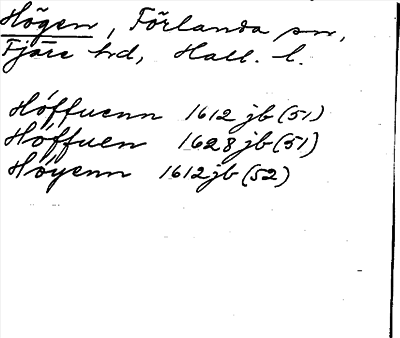 Högen, Förlanda sn,
Fjäre hd, Hall. l.
Hóffuenn 1612 jb (51)
Hóffuen 1628 jb (51)
Hóyenn 1612 jb (52)